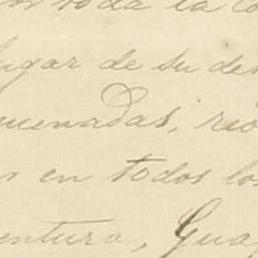 toda la co
lugar de su des
menadas, rio
en todos los
entura, Gua